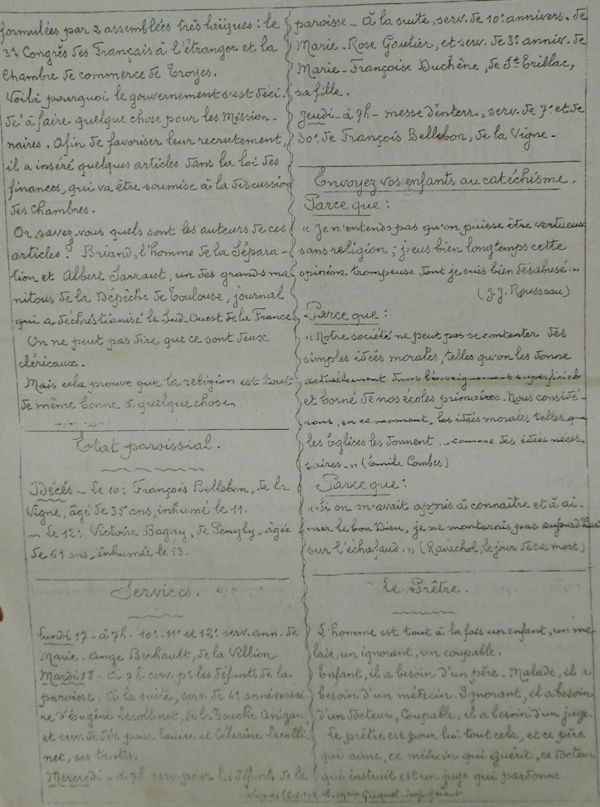 formulées par 2 assemblées très laïques : le
3e Congrès des Français à l'étranger et la
Chambre de commerce de Troyes.
Voilà pourquoi le gouvernement s'est déci-
dé à faire quelque chose pour les Mission-
naires. Afin de favoriser leur recrutement,
il a inséré quelques articles dans la loi des
finances, qui va être soumise à la discussion
des Chambres.
Or savez-vous quels sont les auteurs de ces
articles ? Briand, l'homme de la Sépara-
tion et Albert Sarraut, un des grands ma
nitous de la Dépêche de Toulouse, journal
qui a déchristianisé le Sud-Ouest de la France
On ne peut pas dire que ce sont deux
cléricaux.
Mais cela prouve que la religion est tout
de même bonne à quelque chose.
Etat paroissial.
Décés - le 10 : François Bellebon, de la
Vigne, âgé de 35 ans, inhumé le 11.
- le 12 : Victoire Bagay, de Penyly, âgée
de 61 ans, inhumée le 13.
Services.
Lundi 17 - à 7h - 10e 11e et 12e serv. ann. de
Marie-Ange Berhault, de la Villion.
Mardi 18 - à 7h. serv. pr les défunts de la
paroisse. A la suite, serv. de 4e anniversai
re d'Eugène
et serv. de dév. pour Louise et Célerine
Mercredi - à 7h serv. pour les défunts de la
paroisse - à la suite, serv. de 10e annivers. de
Marie-Rose Goutier, et serv. de 3e anniv. de
Marie-Françoise Duchêne, de St Trillac,
sa fille.
Jeudi - à 7h - messe d'enterr., serv. de 7e et de
30e de François Bellebon, de la Vigne.
Envoyez vos enfants au catéchisme.
Parce que :
« Je n'entends pas qu'on puisse être vertueux
sans religion ; j'eus bien longtemps cette
opinion trompeuse dont je suis bien désabusé. »
(J.J. Rousseau)
Parce que :
« Notre société ne peut pas se contenter des
simples idées morales, telles qu'on les donne
actuellement dans l'enseignement superficiel
et borné de nos écoles primaires. Nous considé-
rons, en ce moment, les idées morales telles que
les Eglises les donnent ... comme des idées néces-
saires. » (Emile Combes)
Parce que :
« Si on m'avait appris à connaître et à ai-
mer le bon Dieu, je ne monterais pas aujourd'hui
sur l'échafaud. » (Ravachol, le jour de sa mort)
Le Prêtre.
L'homme est tout à la fois un enfant, un ma-
lade, un ignorant, un coupable.
Enfant, il a besoin d'un père. Malade, il a
besoin d'un médecin. Ignorant, il a besoin
d'un docteur, Coupable, il a besoin d'un juge.
Le prêtre est pour lui tout cela, et ce père
qui aime, ce médecin qui guérit, ce docteur
qui instruit est un juge qui pardonne